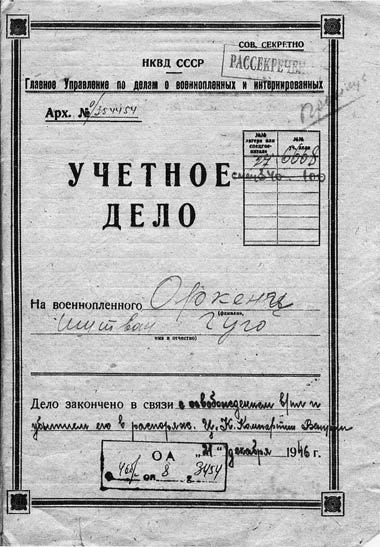 СОВ. СЕКРЕТНО
НКВД СССР
РАССЕКРЕЧЕНО
Главное Управление по делам о военнопленных и интернированных
Арх. № 01354454
№№
лагеря или
спецгос-
питаля
№№
уч. дела
27 6668
спец. 340 100
УЧЕТНОЕ
ДЕЛО
На военнопленного Оркень
(фамилия,
Иштван Гуго
имя и отчество)
Дело закончено в связи с освобождением в/пл и
убытием его в распоряж. Ц. К. Компартии Венгрии
"21" декабря 1946 г.
ОА
8 3454